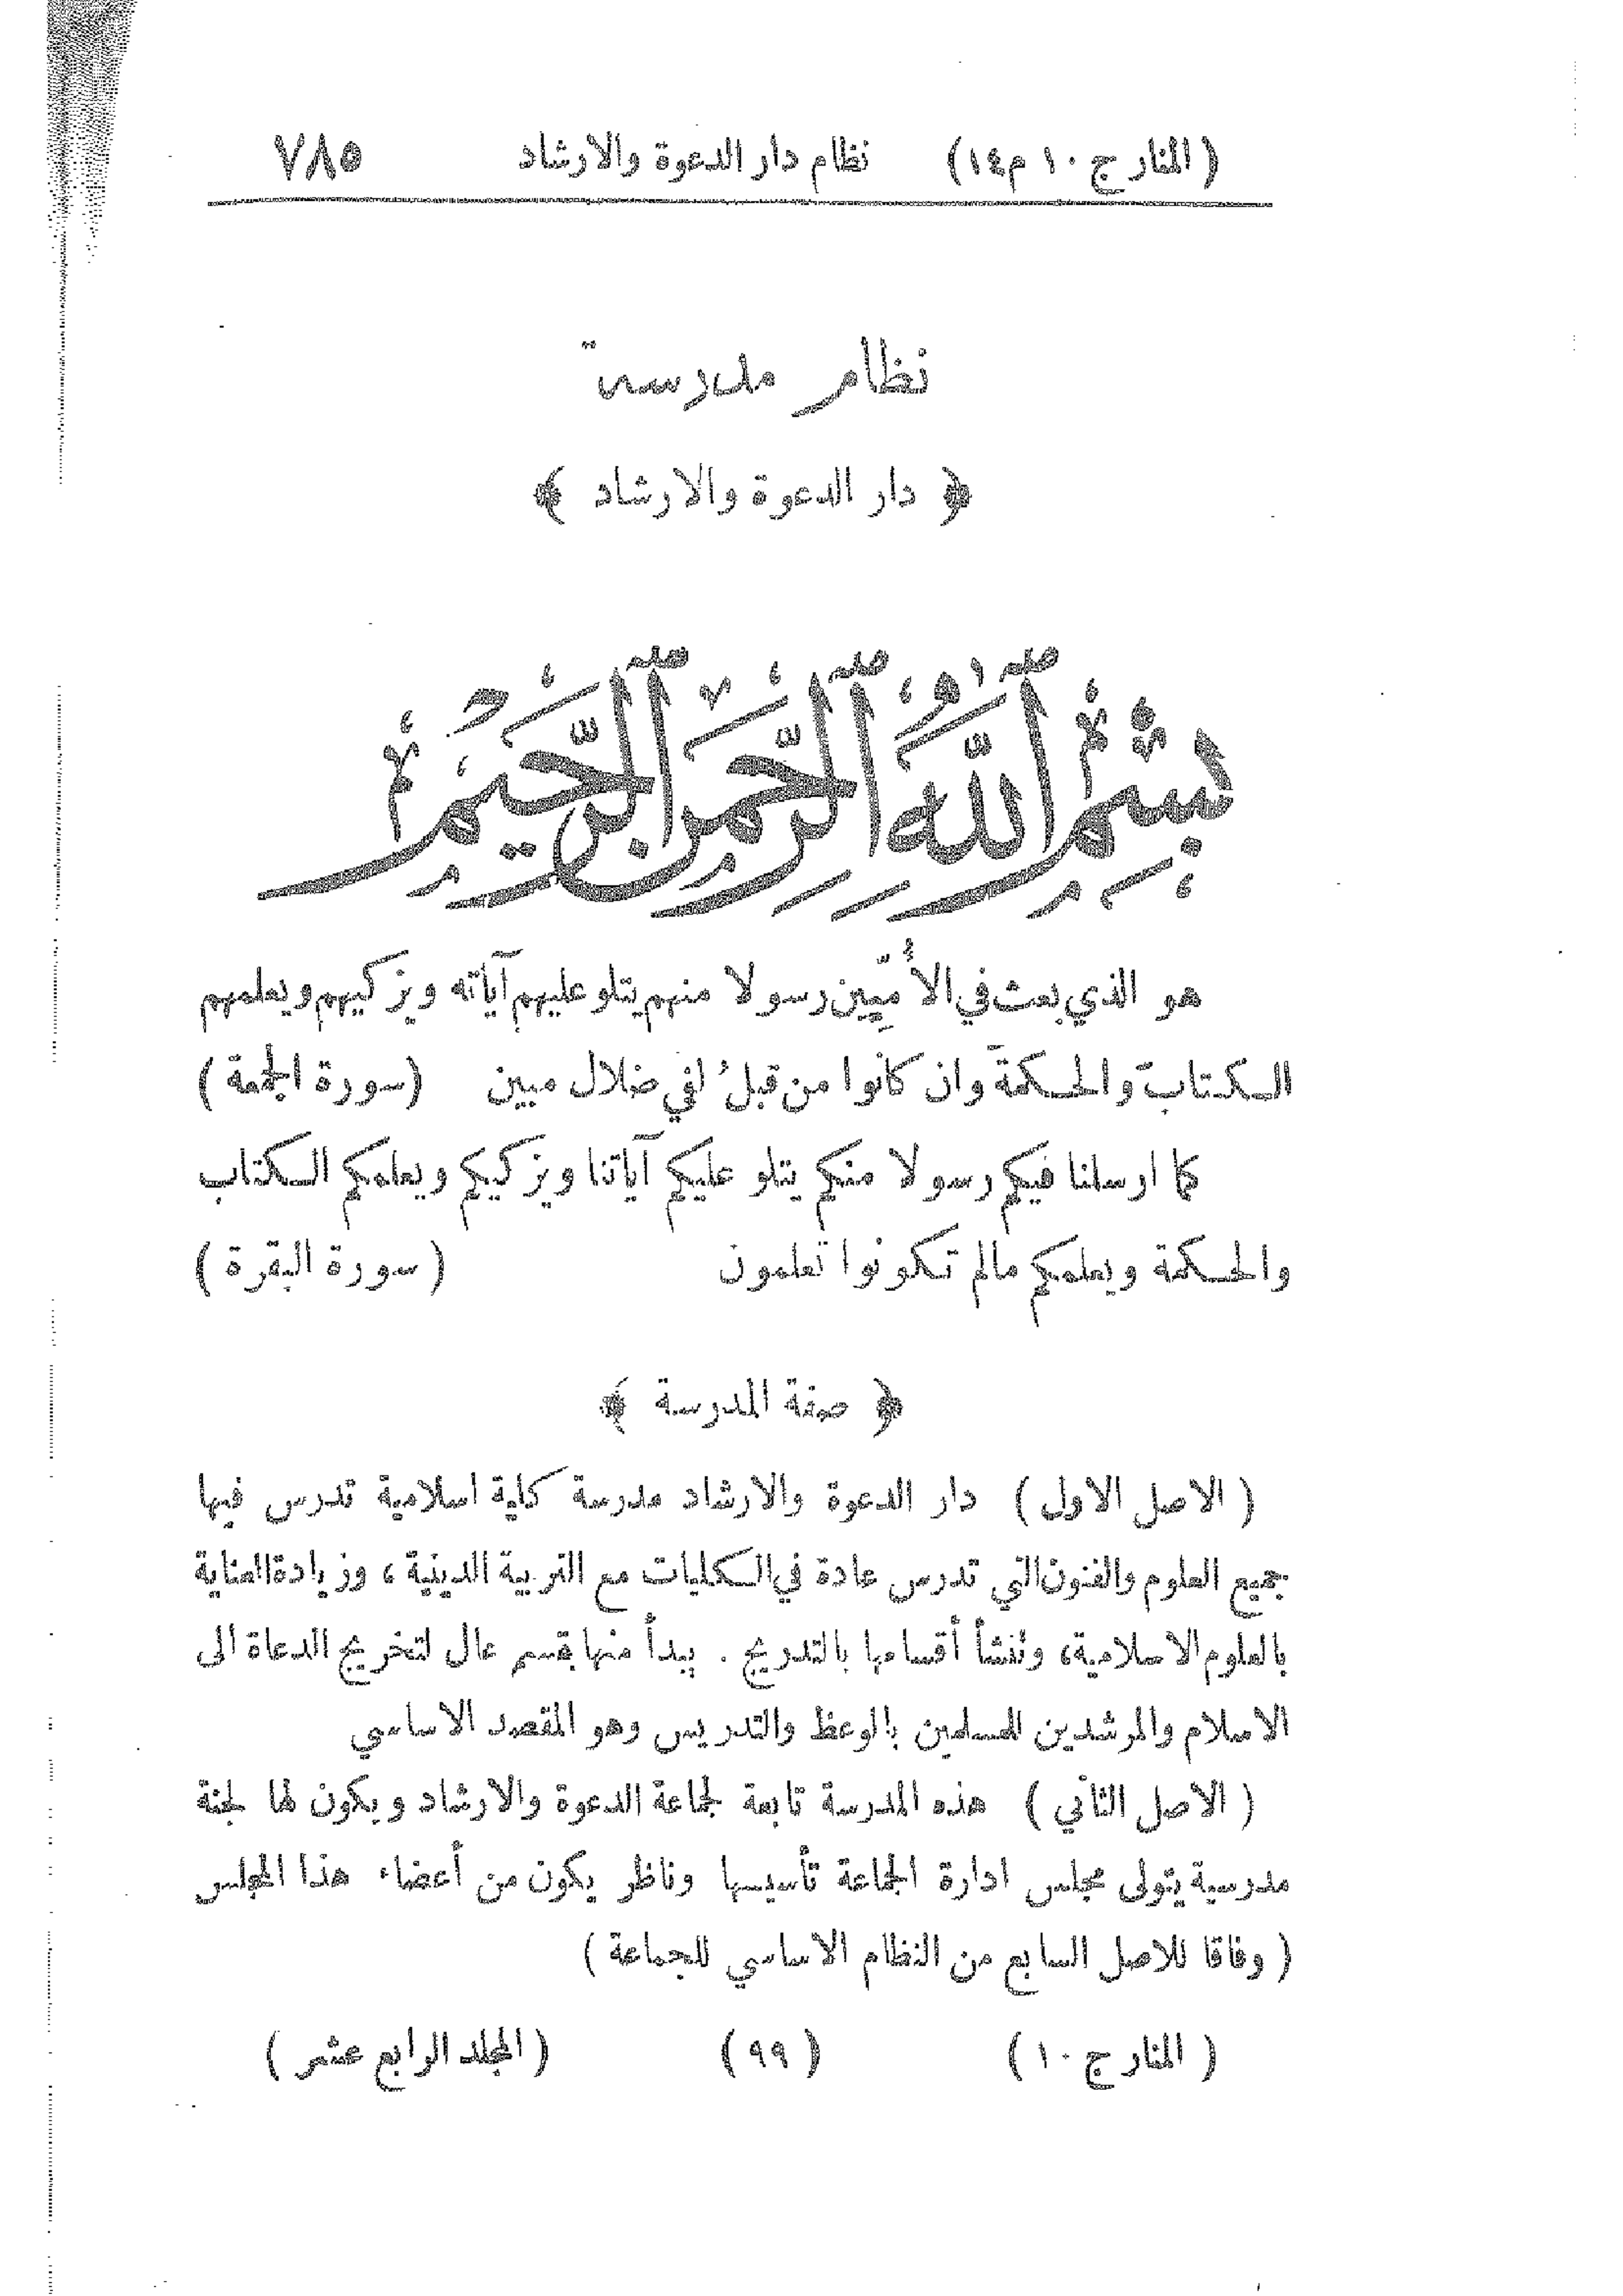 ( المنار ج ١٠ م١٤) نظام دار الدعوة والارشاد ٧٨٥
نظام مدرسة
﴿ دار الدعوة والارشاد ﴾
بِسْمِ ٱللَّهِ ٱلرَّحْمَٰنِ ٱلرَّحِيمِ
هو الذي بعث في الأُميِّين رسولا منهم يتلو عليهم آياته ويزكيهم ويعلمهم
الكتاب والحكمة وان كانوا من قبلُ لفي ضلال مبين (سورة الجمعة )
كما ارسلنا فيكم رسولا منكم يتلو عليكم آياتنا ويزكيكم ويعلمكم الكتاب
والحكمة ويعلمكم مالم تكونوا تعلمون ( سورة البقرة )
﴿ صفة المدرسة ﴾
( الاصل الاول ) دار الدعوة والارشاد مدرسة كلية اسلامية تدرس فيها
جميع العلوم والفنون التي تدرس عادة في الكليات مع التربية الدينية ، وزيادة العناية
بالعلوم الاسلامية، وتنشأ أقسامها بالتدريج . يبدأ منها بقسم عال لتخريج الدعاة الى
الاسلام والمرشدين للمسلمين بالوعظ والتدريس وهو المقصد الاساسي
( الاصل الثاني ) هذه المدرسة تابعة لجماعة الدعوة والارشاد ويكون لها لجنة
مدرسية يتولى مجلس ادارة الجماعة تأسيسها وناظر يكون من أعضاء هذا المجلس
( وفاقا للاصل السابع من النظام الاساسي للجماعة )
( المنار ج ١٠ ) ( ٩٩ ) ( المجلد الرابع عشر )